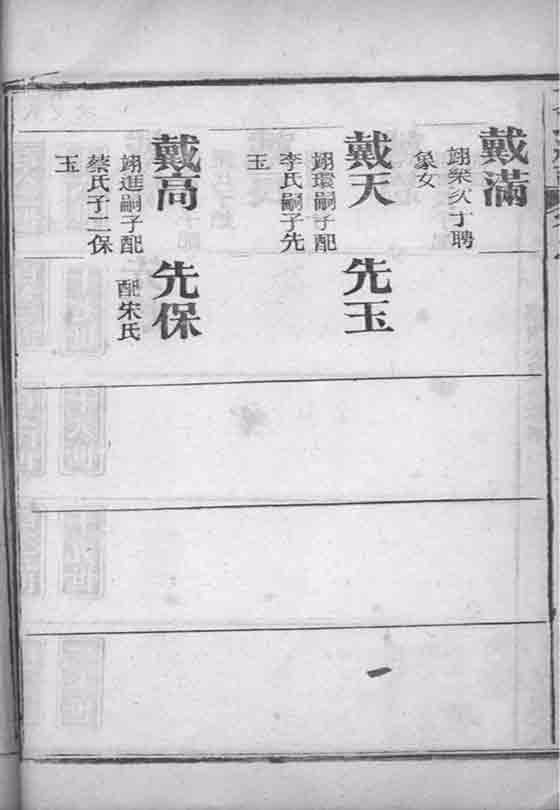 戴滿
翊梁次丁聘
象女
戴天
翊環嗣子配
李氏嗣子先
玉
先玉
戴高
翊進嗣子配
蔡氏子二保
玉
先保
配朱氏